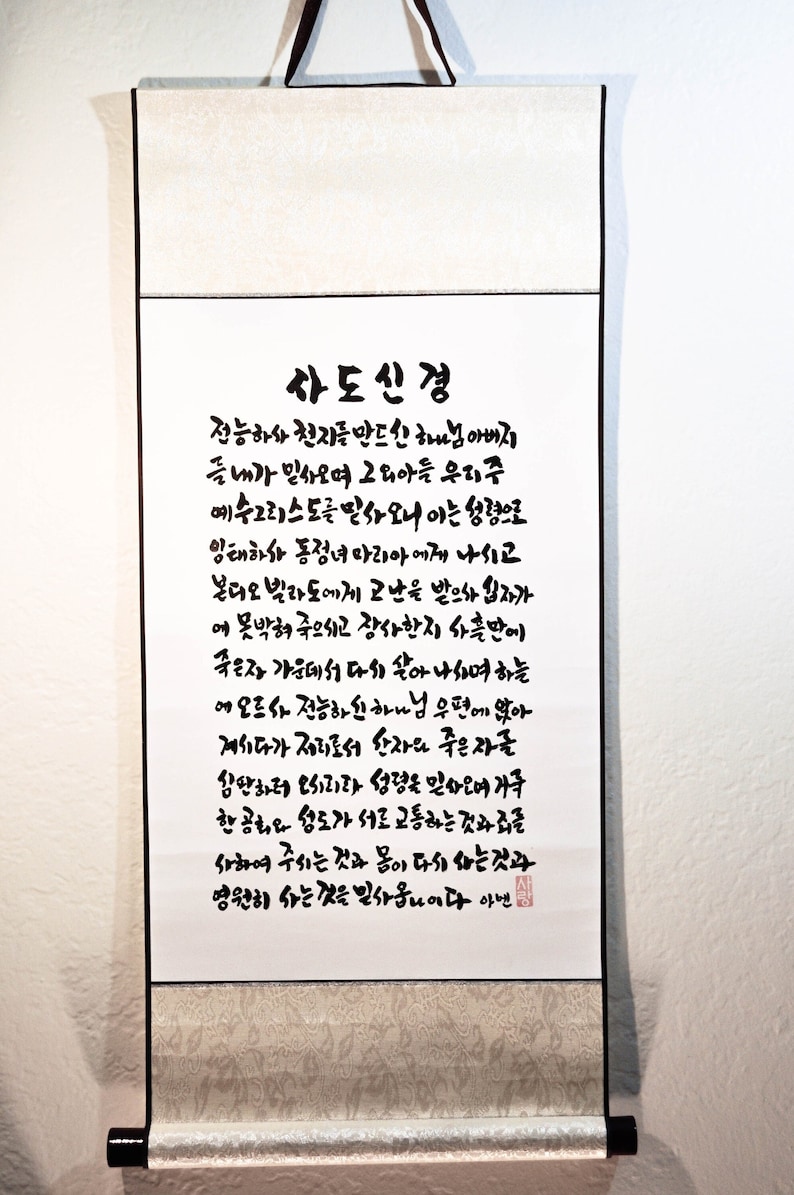 사도신경
전능하사 천지를 만드신 하나님 아버지
를 내가 믿사오며 그 외아들 우리 주
예수 그리스도를 믿사오니 이는 성령으로
잉태하사 동정녀 마리아에게 나시고
본디오 빌라도에게 고난을 받으사 십자가
에 못박혀 죽으시고 장사한지 사흘만에
죽은자 가운데서 다시 살아 나시며 하늘
에 오르사 전능하신 하나님 우편에 앉아
계시다가 저리로서 산자와 죽은 자를
심판하러 오시리라 성령을 믿사오며 거룩
한 공회와 성도가 서로 교통하는 것과 죄를
사하여 주시는 것과 몸이 다시 사는 것과
영원히 사는 것을 믿사옵나이다 아멘
사랑